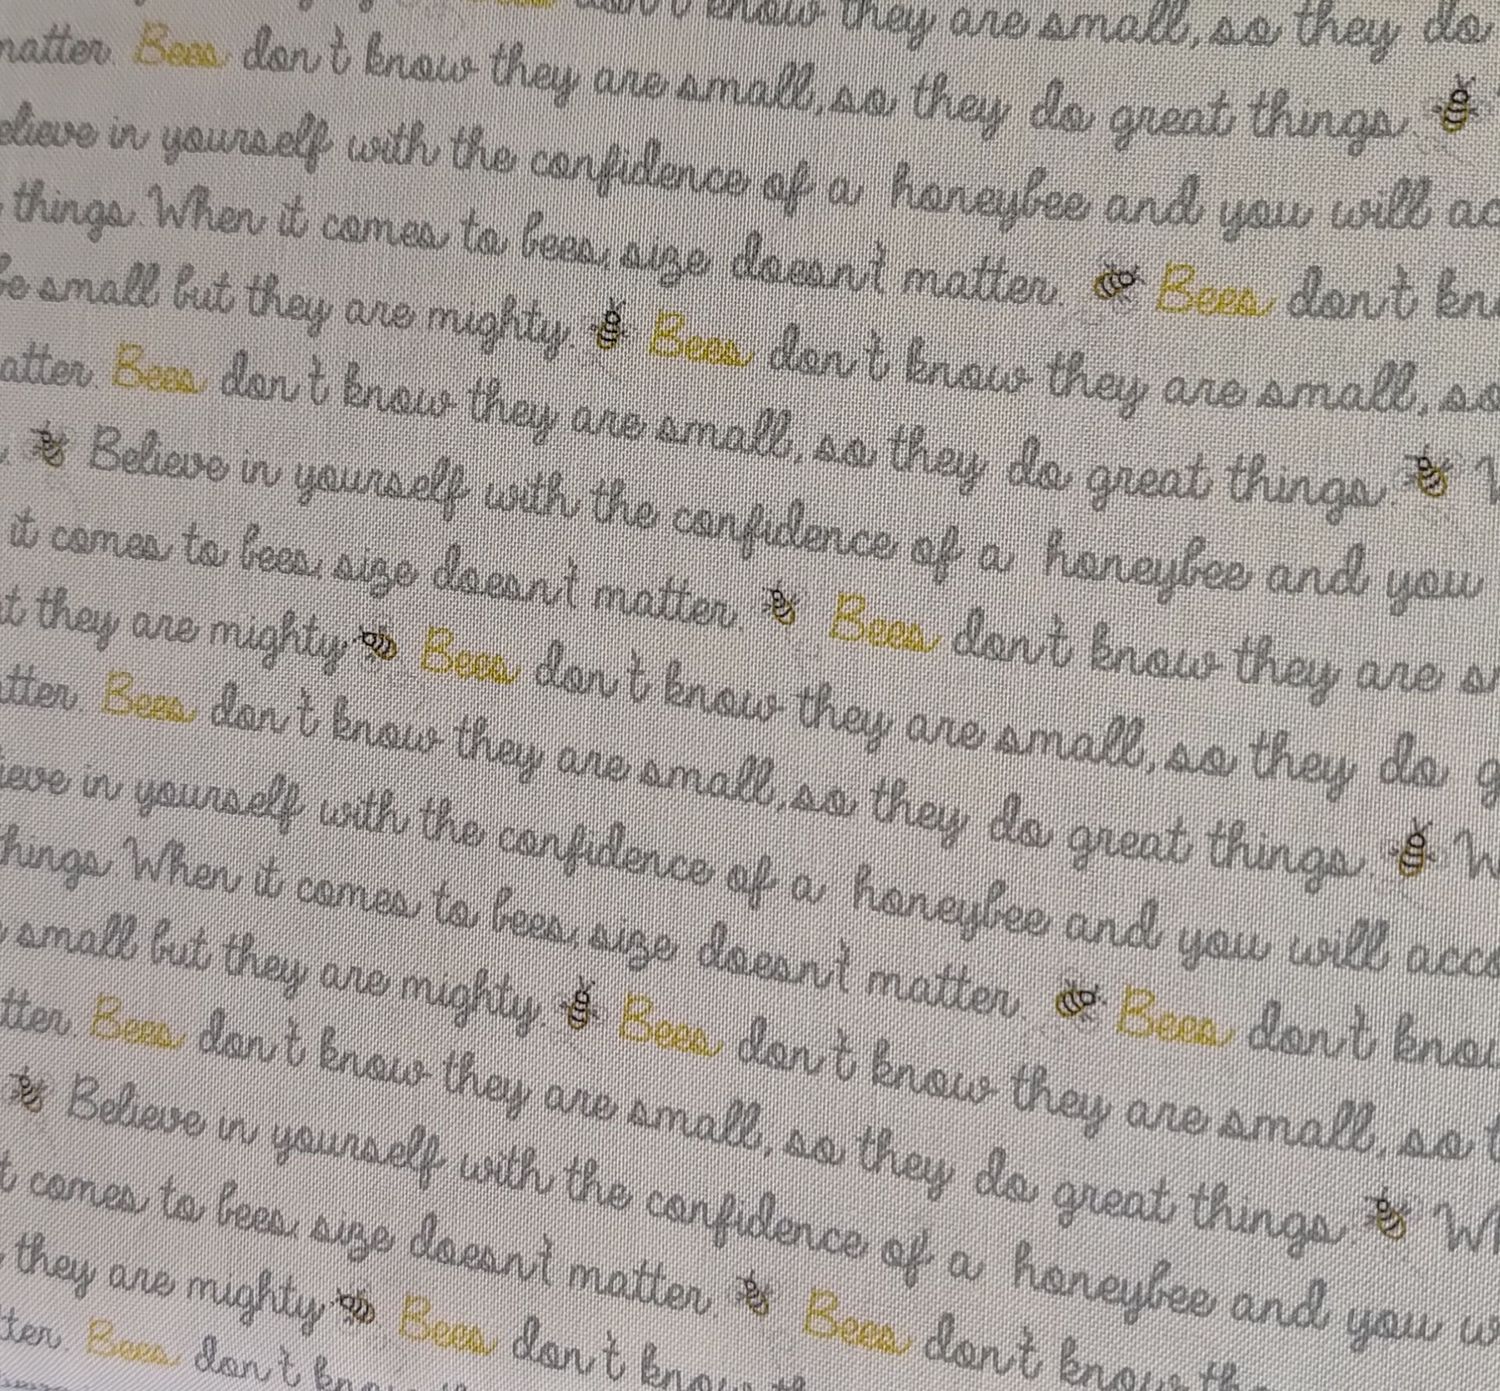 don't know they are small, so they do
matter. Bees don't know they are small, so they do great things.
in yourself with the confidence of a honeybee and you will
things. When it comes to bees, size doesn't matter. Bees don't
small but they are mighty. Bees don't know they are small, so
Bees don't know they are small, so they do great things.
Believe in yourself with the confidence of a honeybee and you
it comes to bees, size doesn't matter. Bees don't know they are
they are mighty Bees don't know they are small, so they do
Bees don't know they are small, so they do great things.
in yourself with the confidence of a honeybee and you will
When it comes to bees, size doesn't matter. Bees don't
small but they are mighty. Bees don't know they are small, so
Bees don't know they are small, so they do great things.
Believe in yourself with the confidence of a honeybee and you
comes to bees, size doesn't matter. Bees don't know
they are mighty Bees don't know
Bees don't